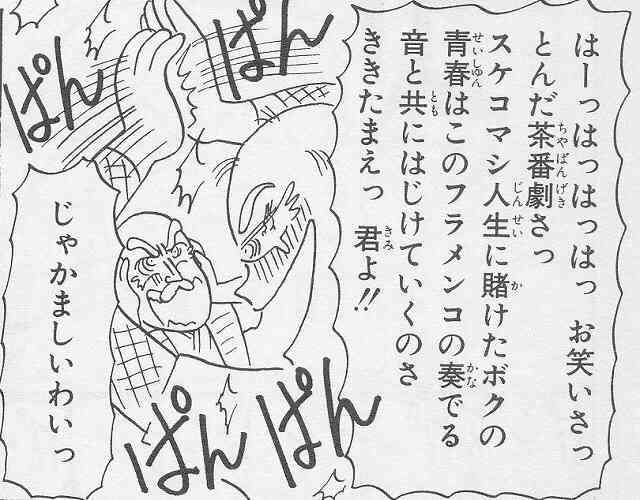 はーっはっはっはっ　お笑いさっ
とんだ茶番劇さっ
スケコマシ人生に賭けたボクの
青春はこのフラメンコの奏でる
音と共にはじけていくのさ
ききたまえっ　君よ!!
ぱん
ぱん
じゃかましいわいっ
ぱん
ぱん